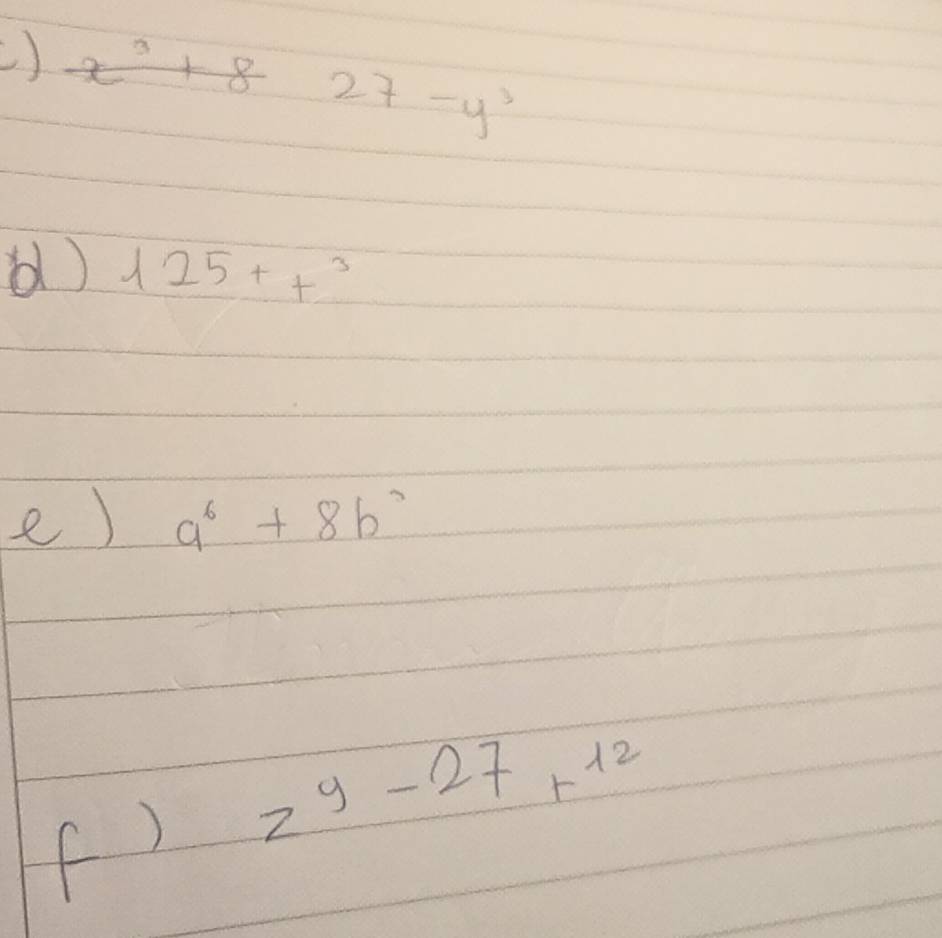 c) ~~x³ + 8~~ 27 - y³
d) 125 + t³
e) a⁶ + 8b³
f) z⁹ - 27t¹²